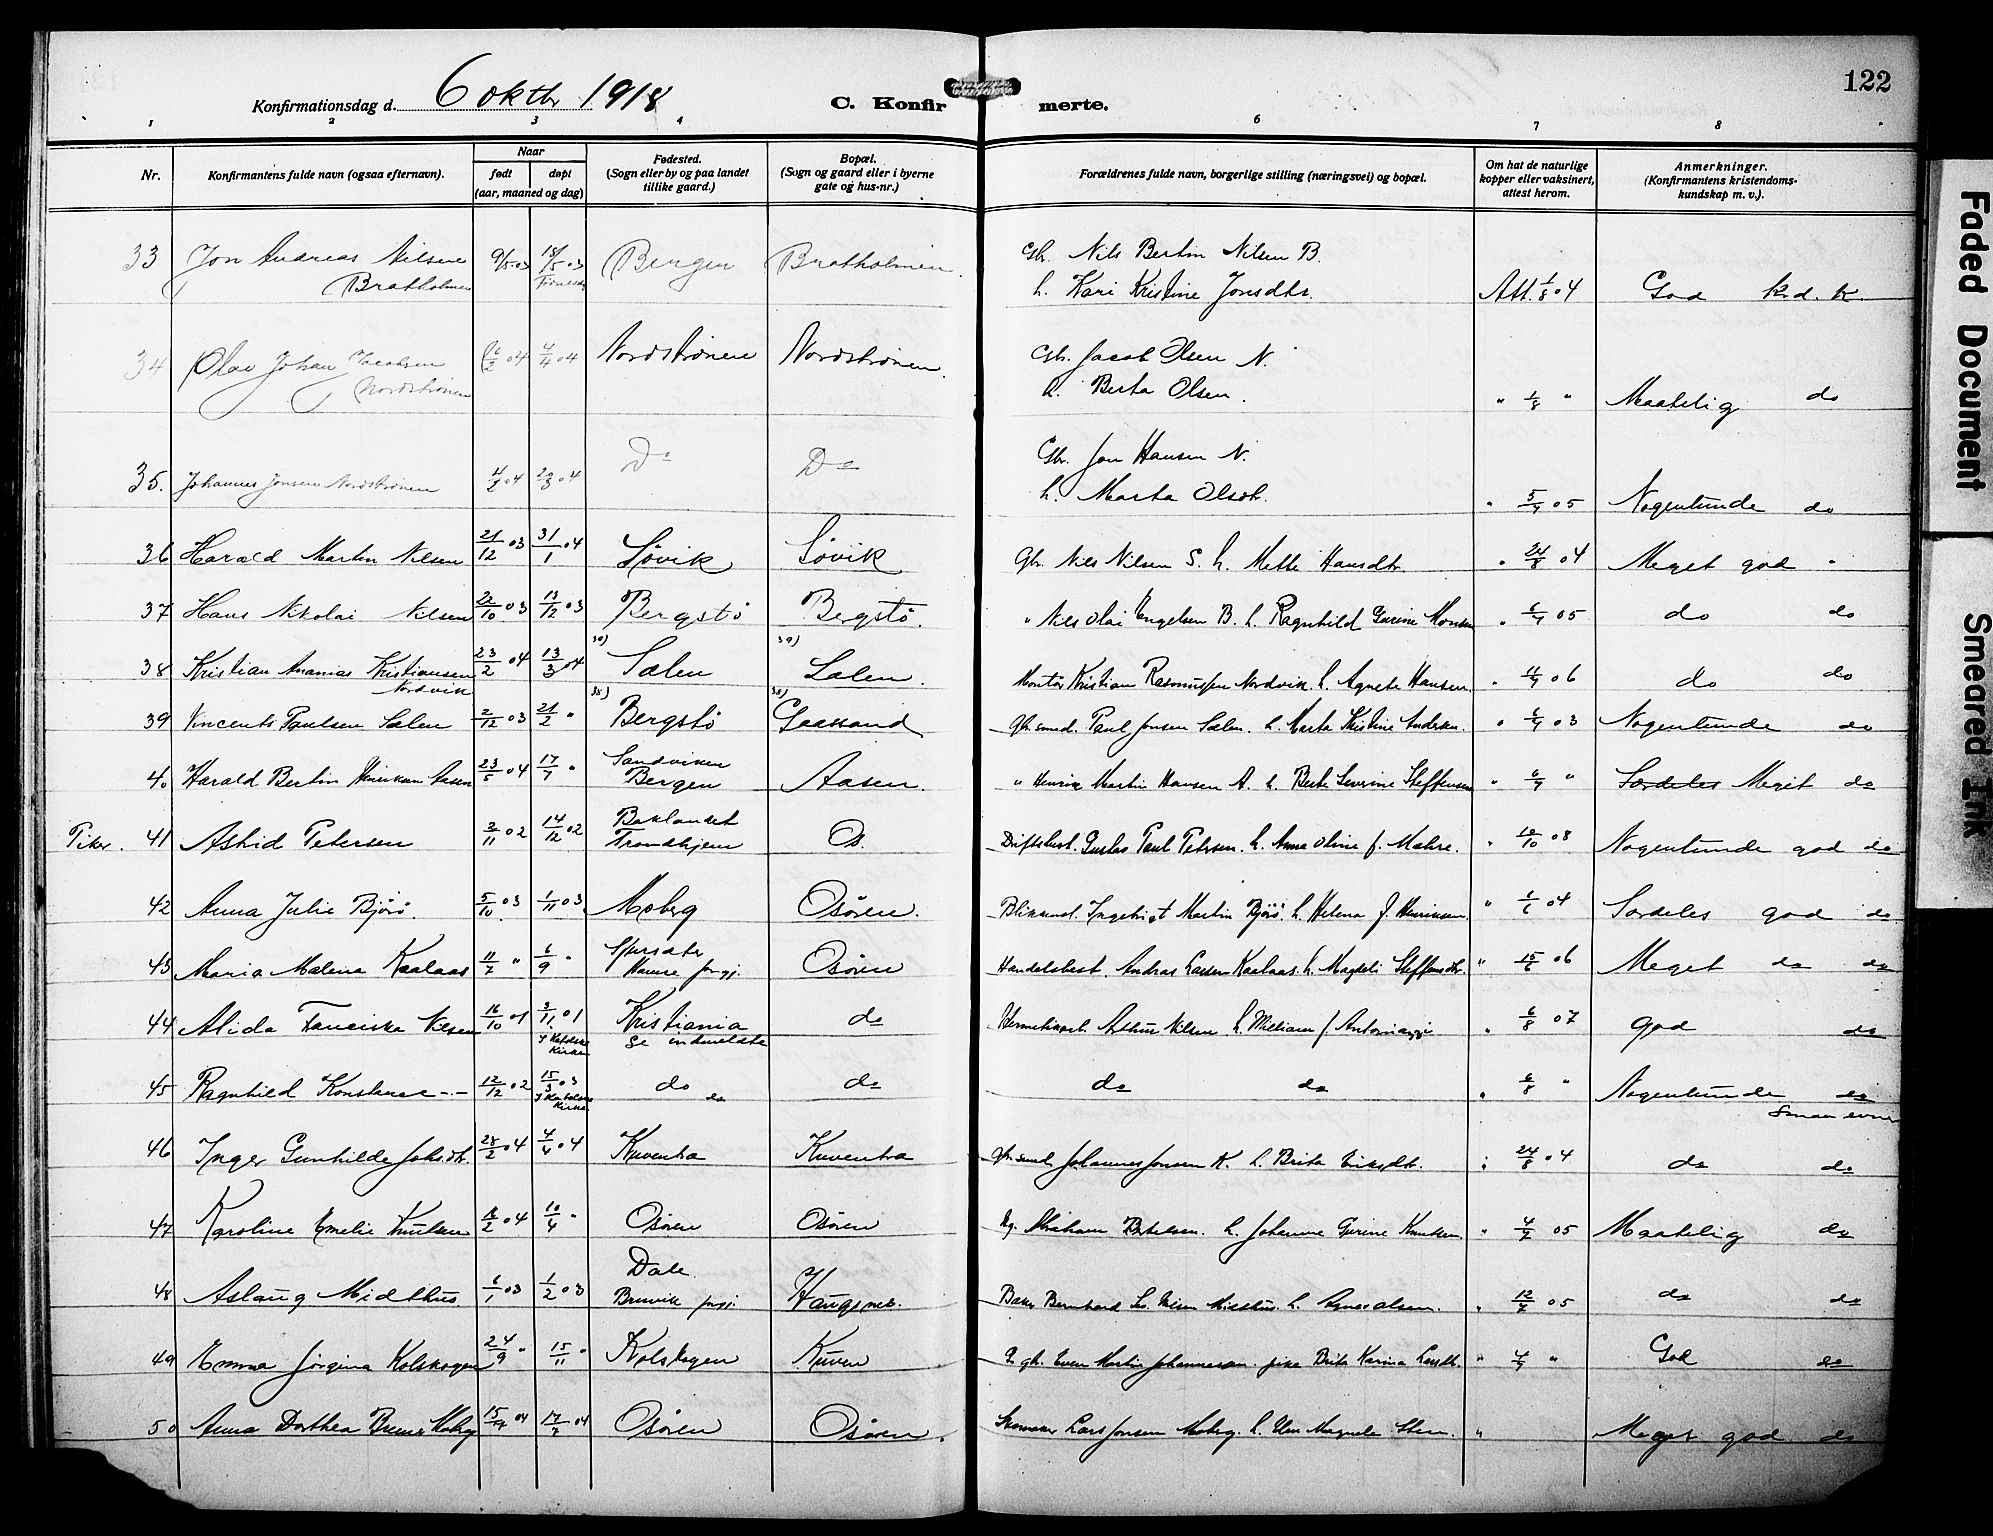 6 oktbr 1918
Konfirmationsdag d.
C. Konfirmerte.
122
1 2 3 4 5 6 7 8
Nr.
Konfirmantens fulde navn (ogsaa efternavn).
Naar
født døpt
(aar, maaned og dag)
Fødested.
(Sogn eller by og paa landet
tillike gaard.)
Bopæl.
(Sogn og gaard eller i byerne
gate og hus-nr.)
Forældrenes fulde navn, borgerlige stilling (næringsvei) og bopæl.
Om hat de naturlige
kopper eller vaksinert,
attest herom.
Anmerkninger.
(Konfirmantens kristendoms-
kundskap m. v.).
33 Jon Andreas Nilsen 9/5 03 Bergen Bratholmen. Gbr. Nils Bertin Nilsen B.
Bratholmen h. Kari Kristine Jonsdtr. Att. 1/8 04 God k.d.k.
34 Olav Johan Jacobsen 4/4 04 Nordstrønen Nordstrønen. Gbr. Jacob Olsen N.
Nordstrønen h. Berta Olsen. " 1/8 " Maatelig do
Do Do Gbr. Jon Hansen N.
35. Johannes Jonsen Nordstrønen 4/2 04 20/3 04 h. Marta Olsdtr. " 5/7 05 Nogenlunde do
36 Harald Martin Nilsen 21/12 03 31/1 04 Søvik Søvik Gbr. Nils Nilsen S. h. Mette Hansdtr. " 24/8 04 Meget god "
37 Hans Nikolai Nilsen 22/10 03 13/12 03 Bergstø Bergstø. " Nils Olai Engelsen B. h. Ragnhild Gurine Monsen " 6/7 05 do do
38 Kristian Ananias Kristiansen 23/2 04 13/3 04 39) Sælen 39) Sælen. Montør Kristian Rasmussen Nordvik. h. Agnete Hansen. 06 do do
Nordvik
39 Vincents Paulsen Sælen 2/12 03 21/2 " 38) Bergstø 38) Gaassand Gbr. smed. Paul Jonsen Sælen. h. Marta Kristine Andersen. " 6/7 03 Nogenlunde do
40 Harald Bertin Henriksen Aasen 23/5 04 17/7 " Sandviken Bergen Aasen. " Henrik Martin Hansen A. h. Berte Severine Steffensen " 6/7 " Særdeles Meget do
Piker. 41 Astrid Petersen 2/11 02 14/12 02 Baklandet Trondhjem Os. Driftsbest. Gustav Paul Petersen. h. Anna Oline f. " 08 Nogenlunde god do
42 Anna Julie Bjørø. 5/10 03 1/11 03 Moberg Osøren. Ingebrigt Martin Bjørø h. Helena f. Henriksen " 1/6 04 Særdeles god do
43 Maria Malena Kaalaas 11/7 " 6/9 " Hamre prgj. Osøren Handelsbest. Andras Larsen Kaalaas. h. Magdeli Steffensdtr. " 15/6 06 Meget do do
44 Alida Fanciska Nilsen 16/10 01 3/11 01 Kristiania do Arthur Nilsen h. f. " 6/8 07 God do
I Katolske Kirken Se indmeldte
45 Ragnhild Konstance -"- 12/12 02 15/3 03 do do do do " 6/8 " Nogenlunde do
I Katolske Kirke do Smaa evner
46 Inger Gunhilde Johsdtr. 28/2 04 4/4 04 Kuventræ Kuventræ Johannes Jonsen K. h. Brita " 24/8 04 do do
47 Karoline Emelie Knutsen 04 10/4 " Osøren Osøren Abraham h. Johanne Gurine Knutsen " 05 Maatelig do
48 Aslaug Midthus 6/1 03 1/2 03 Dale Bruvik prgj. Baker Bernhard Midthus. h. Agnes Olsen. " 12/7 05 do do
49 Emma Jørgina Kolskogen 24/9 " 15/11 " Kolskogen Kuven Even Martin Johannesen. pike Brita Karina Larsdtr. " " God do
50 Anna Dorthea Moberg 04 17/7 04 Osøren Osøren. Skomaker Lars Jonsen Moberg. h. " Meget god do
Faded Document
Smeared Ink